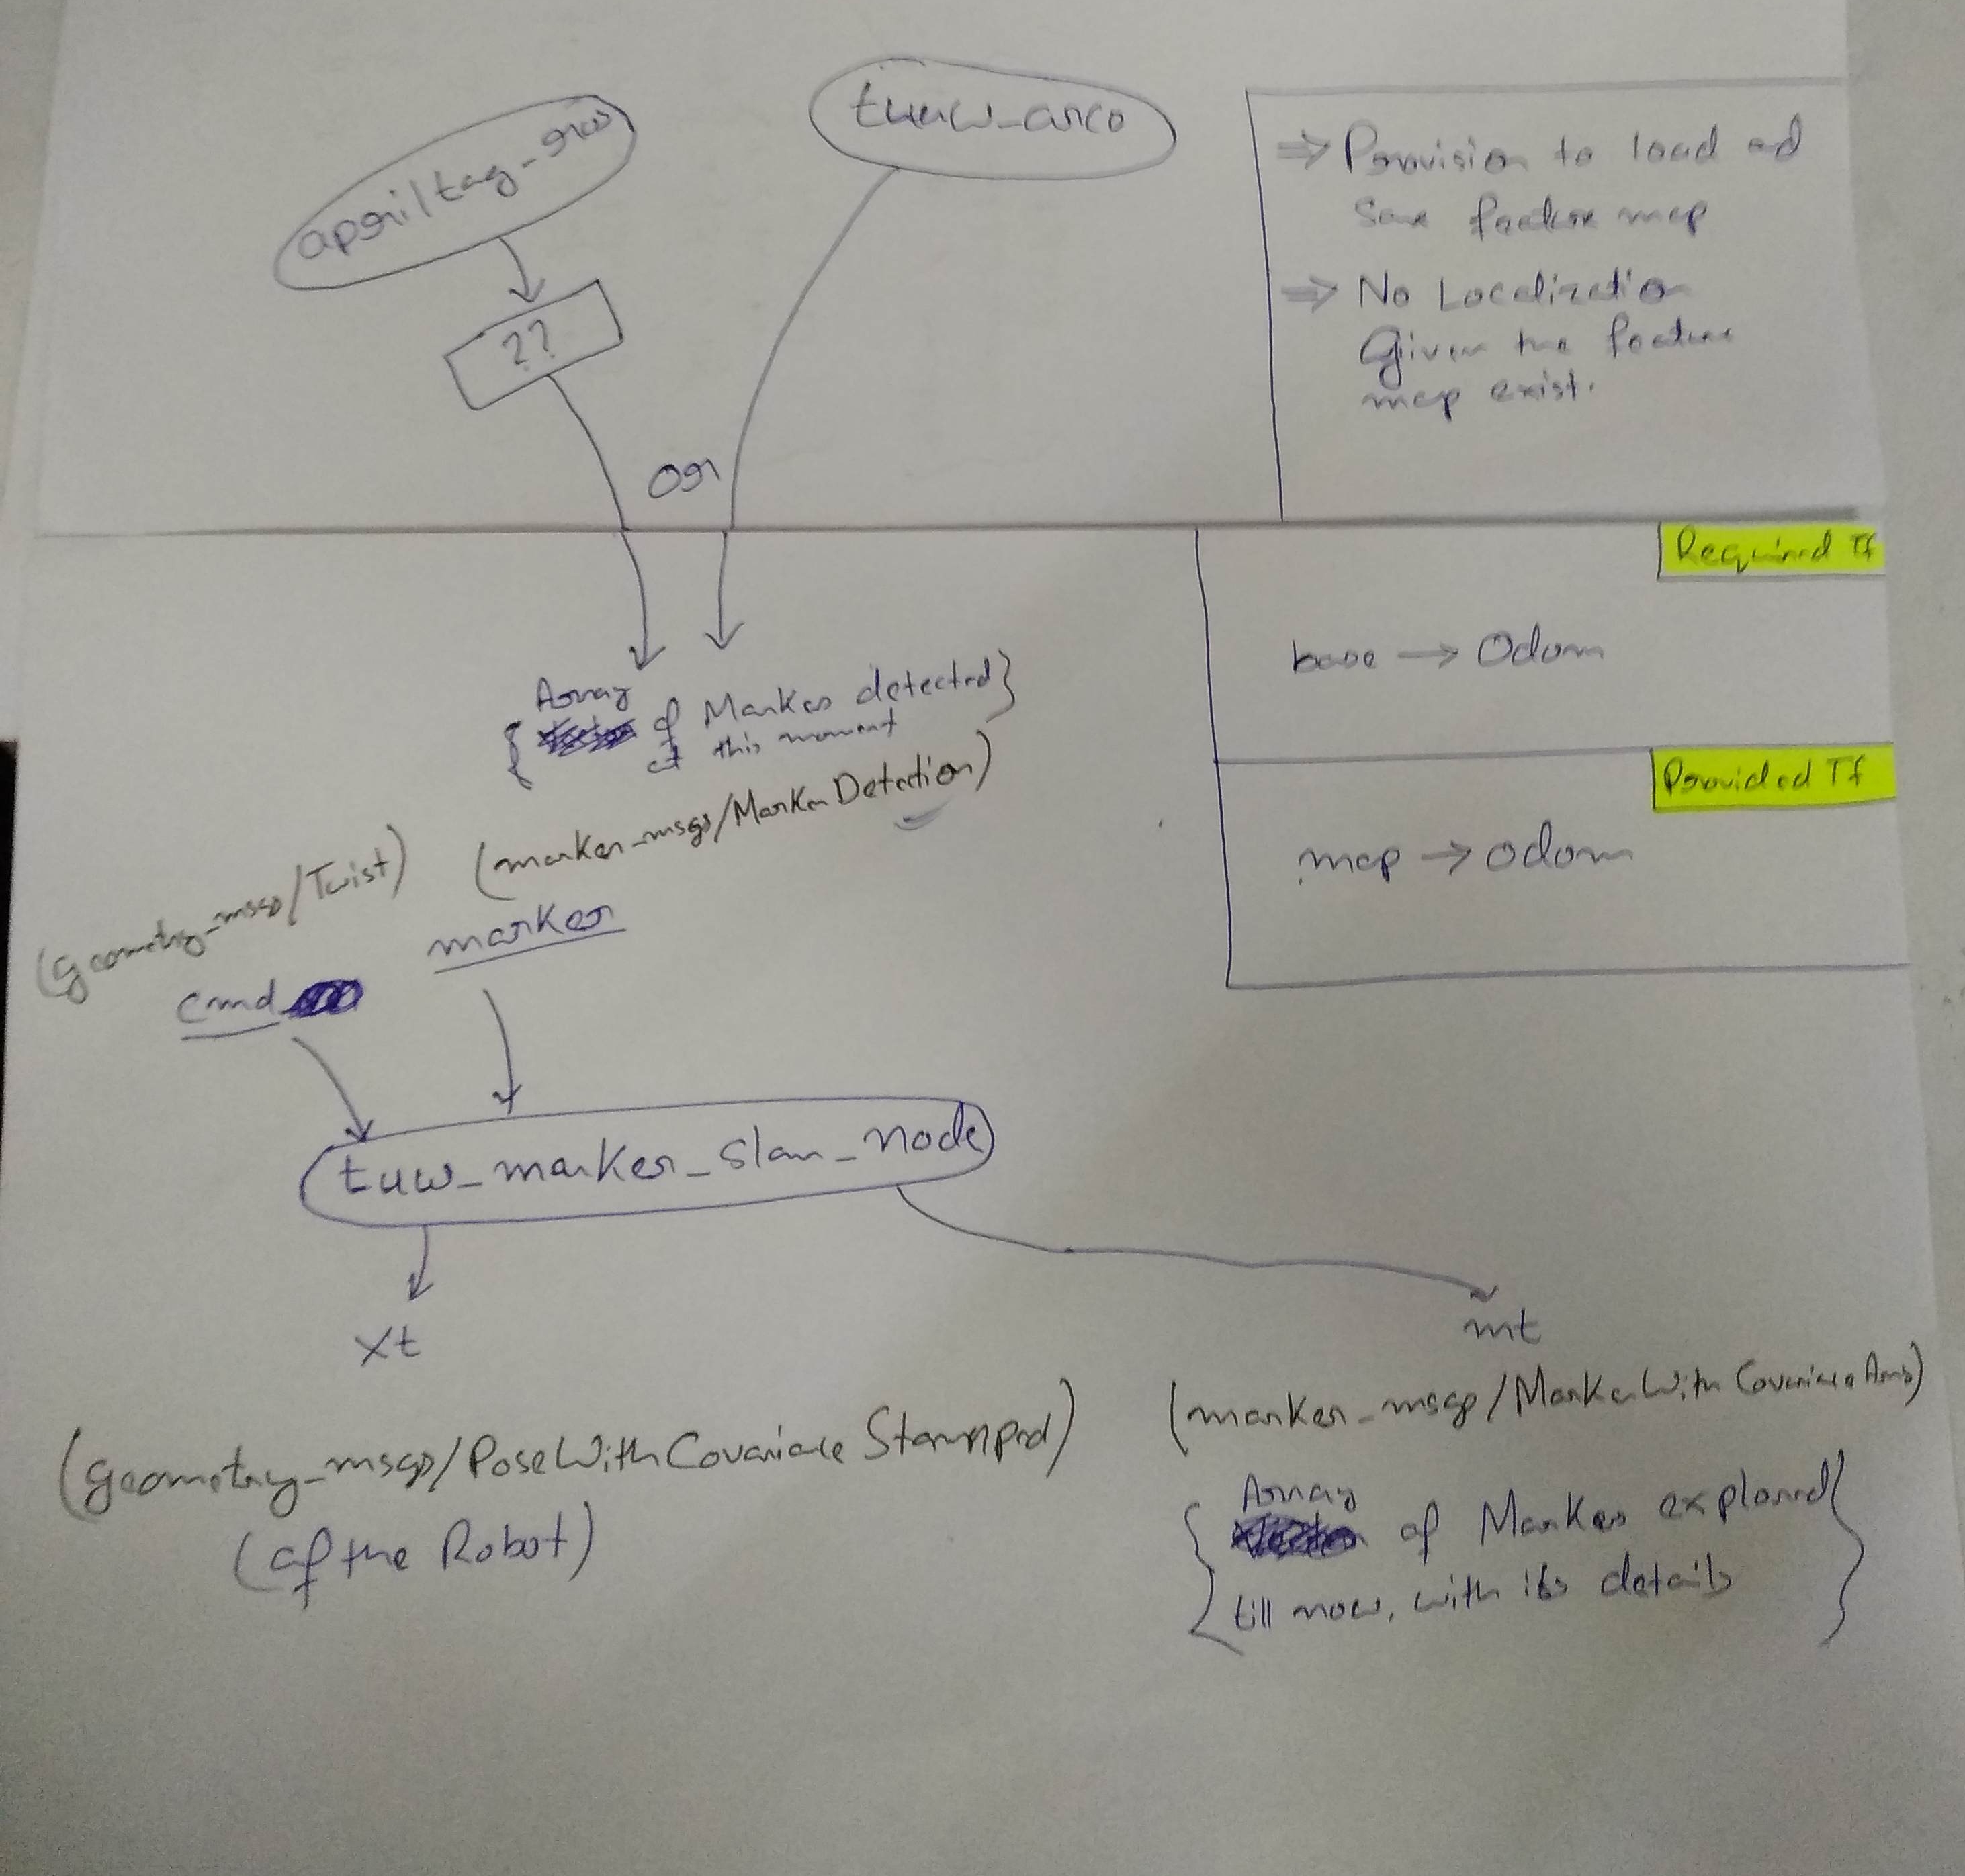 apriltag_ros
tuw_arco
??
or
⇒ Provision to load and
Save feature map
⇒ No Localization
Given the feature
map exist.
Required Tf
base → Odom
Provided Tf
map → odom
Array
{ of Marker detected}
at this moment
(marker_msgs/MarkerDetection)
marker
(geometry_msgs/Twist)
cmd
tuw_marker_slam_node
xt
(geometry_msgs/PoseWithCovariance Stamped)
(of the Robot)
mt
(marker_msgs/MarkerWithCovariance)
Array
{ of Marker explored
till now, with its details }